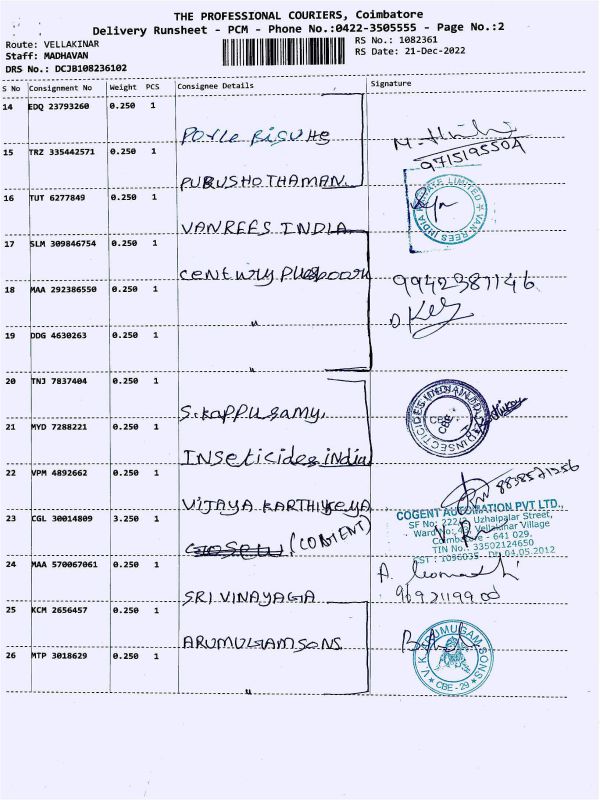 THE PROFESSIONAL COURIERS, Coimbatore
Delivery Runsheet - PCM - Phone No.:0422-3505555 - Page No.:2
Route: VELLAKINAR
RS No.: 1082361
Staff: MADHAVAN
RS Date: 21-Dec-2022
DRS No.: DCJB108236102
S No Consignment No Weight PCS Consignee Details Signature
14 EDQ 23793260 0.250 1
15 TRZ 335442571 0.250 1
PURUSHOTHAMAN
16 TUT 6277849 0.250 1
VANREES INDIA
17 SLM 309846754 0.250 1
century
18 MAA 292386550 0.250 1
9942387146
"
19 DDG 4630263 0.250 1
"
20 TNJ 7837404 0.250 1
S. Kappusamy,
21 MYD 7288221 0.250 1
INSeticides india
22 VPM 4892662 0.250 1
VIJAYA KARTHIKEYA
23 CGL 30014809 3.250 1
COGENT AUTOMATION PVT LTD.,
Uzhaipalar Street,
Vellakinar Village
Coimbatore - 641 029.
TIN No.: 33502124650
CST : 1096035 - Dt 04.05.2012
24 MAA 570067061 0.250 1
SRI VINAYAGA
25 KCM 2656457 0.250 1
ARUMUGAM SONS
26 MTP 3018629 0.250 1
V.K. ARUMUGAM SONS
★ CBE - 29 ★
"